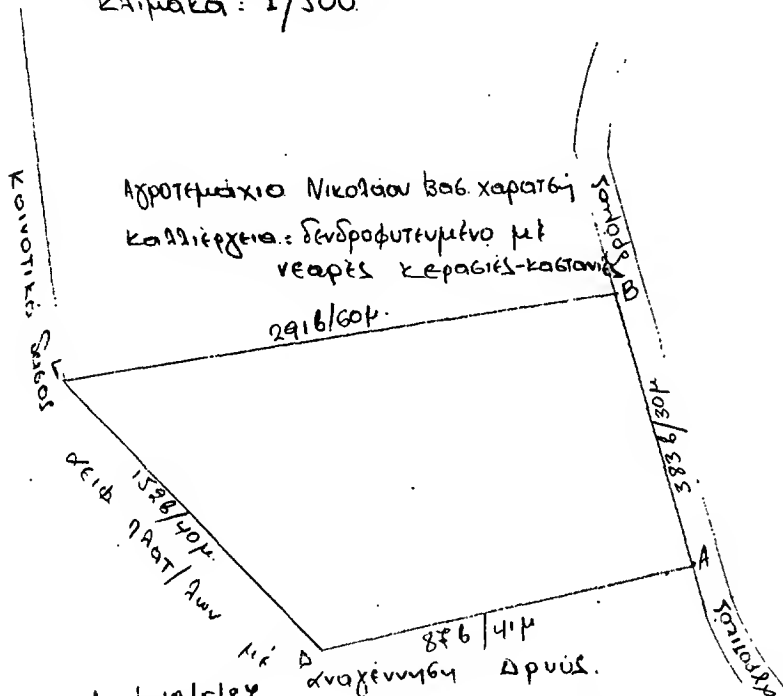 Κλίμακα: 1/500.
Αγροτεμάχιο Νικολάου Βασ. Χαρατσή
Καλλιέργεια: δενδροφυτευμένο μέ
νεαρές κερασιές-καστανιές
Κοινοτικό δάσος
δρόμος
Β
291β/60μ.
Γ
383β/30μ
152β/40μ.
αειφ πλατ/λων
μέ
Α
87β/41μ
Δ
αναγέννηση Δρυός.
αγροτικός